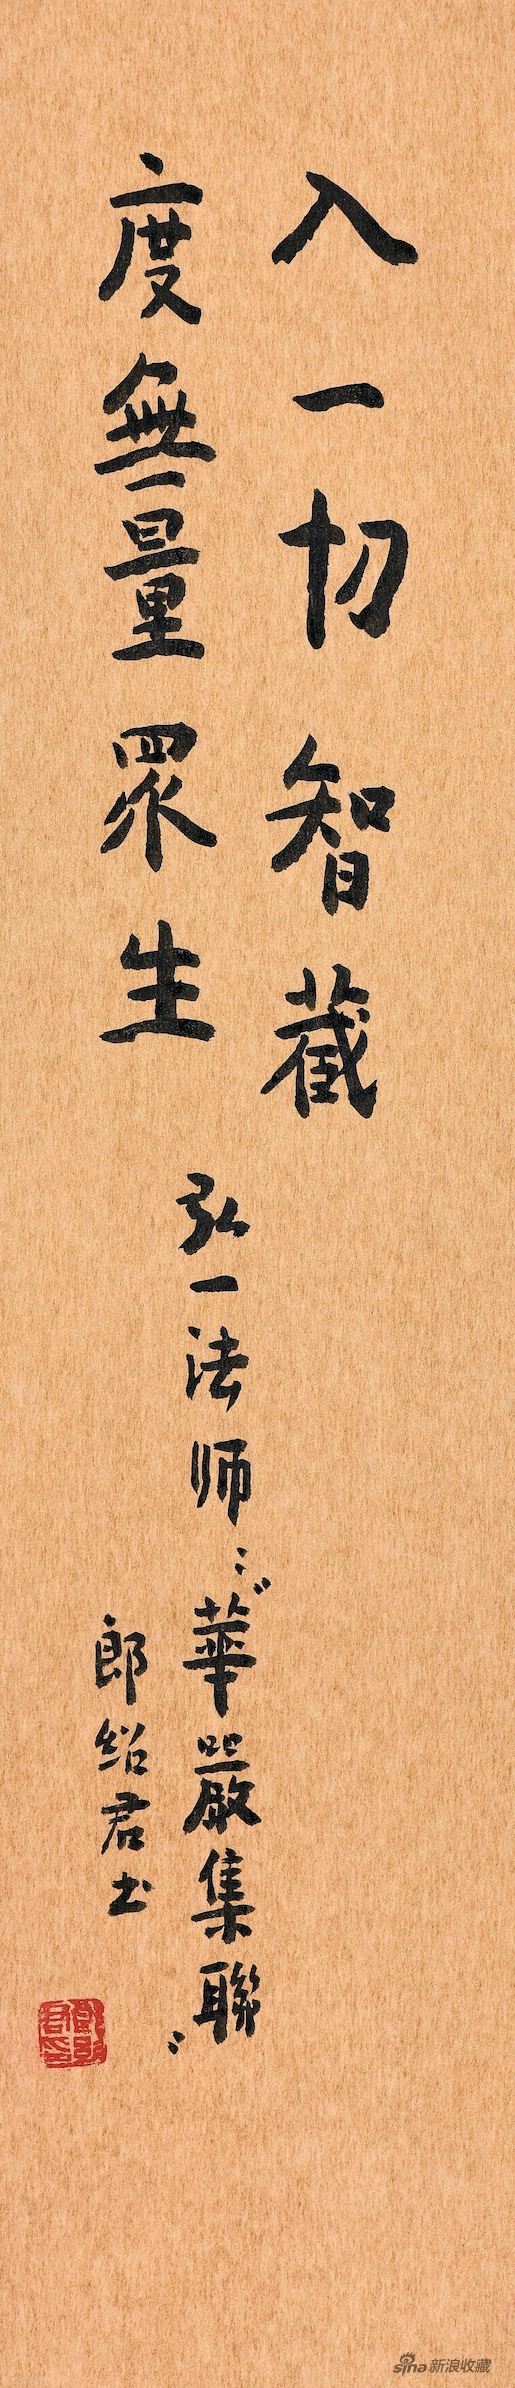 入一切智藏
度無量眾生
弘一法师："華嚴集聯"
郎绍君书
sina新浪收藏